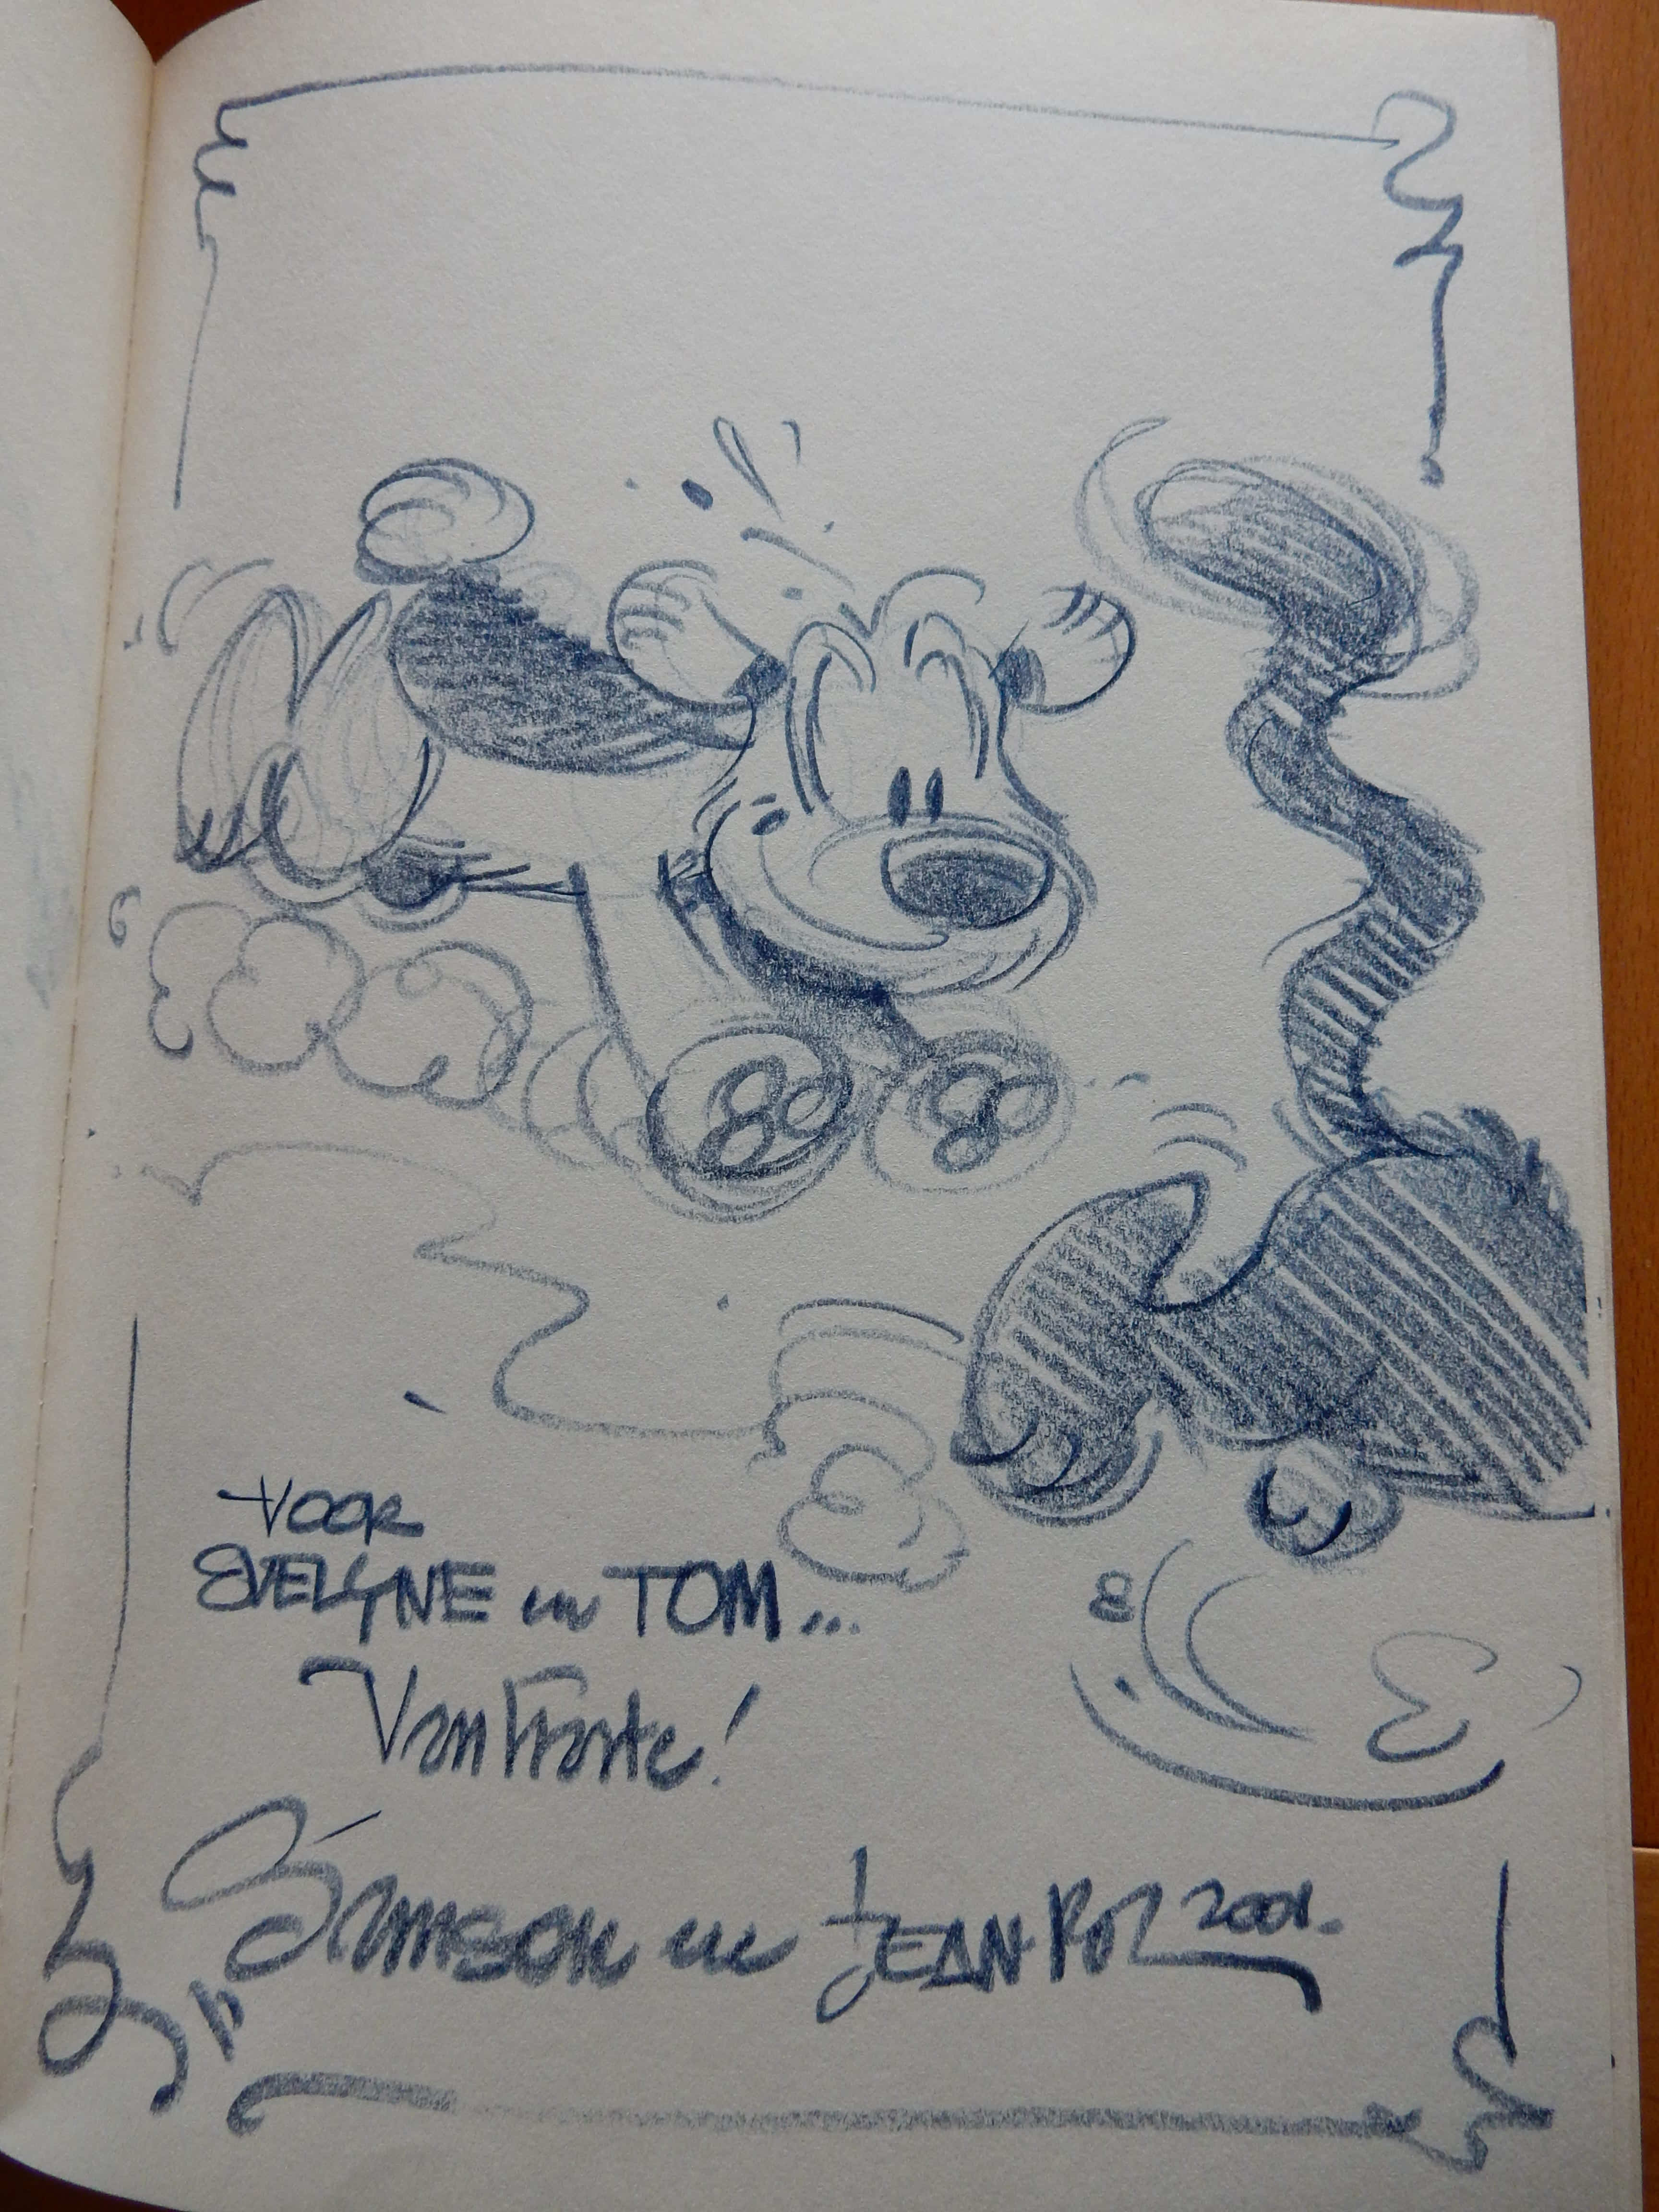 VOOR
EVELYNE en TOM...
Van Harte!
Samson en JEAN-POL 2001.